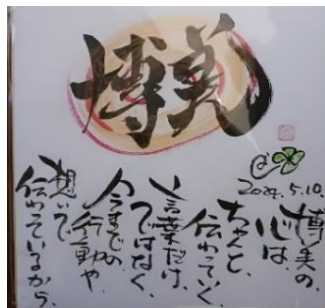 博美
2024.5.10
博美の、
心は、
ちゃんと、
伝わってい
言葉だけ、
ではなく、
今までの、
行動や、
想いで、
伝わっているから、